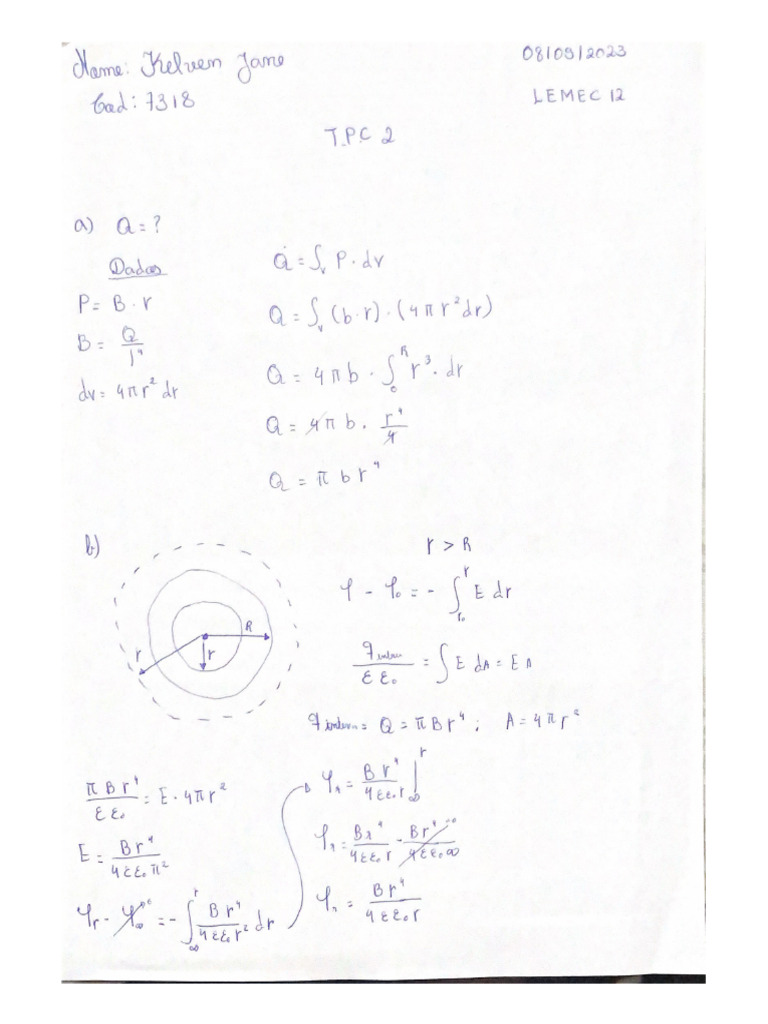 Name: Kelven Jane
08/09/2023
Cod: 7318
LEMEC 12
T.P.C 2
a) Q = ?
Dados
P = B · r
B = Q/r⁴
dv = 4πr² dr
Q = ∫ᵥ P · dv
Q = ∫ᵥ (b·r) · (4πr² dr)
Q = 4πb · ∫₀ᴿ r³ · dr
Q = 4πb · r⁴/4
Q = πbr⁴
b)
R
r
r
r > R
φ - φ₀ = - ∫ᵣ₀ʳ E dr
q/εε₀ = ∫ E dA = E A
Q = πBr⁴ ; A = 4πr²
πBr⁴/εε₀ = E · 4πr²
E = Br⁴/4εε₀π²
φr - φ∞ = - ∫∞ʳ Br⁴/4εε₀r² dr
φ₁ = Br⁴/4εε₀r |∞ʳ
φ₁ = Br⁴/4εε₀r - Br⁴/4εε₀∞
φ₁ = Br⁴/4εε₀r